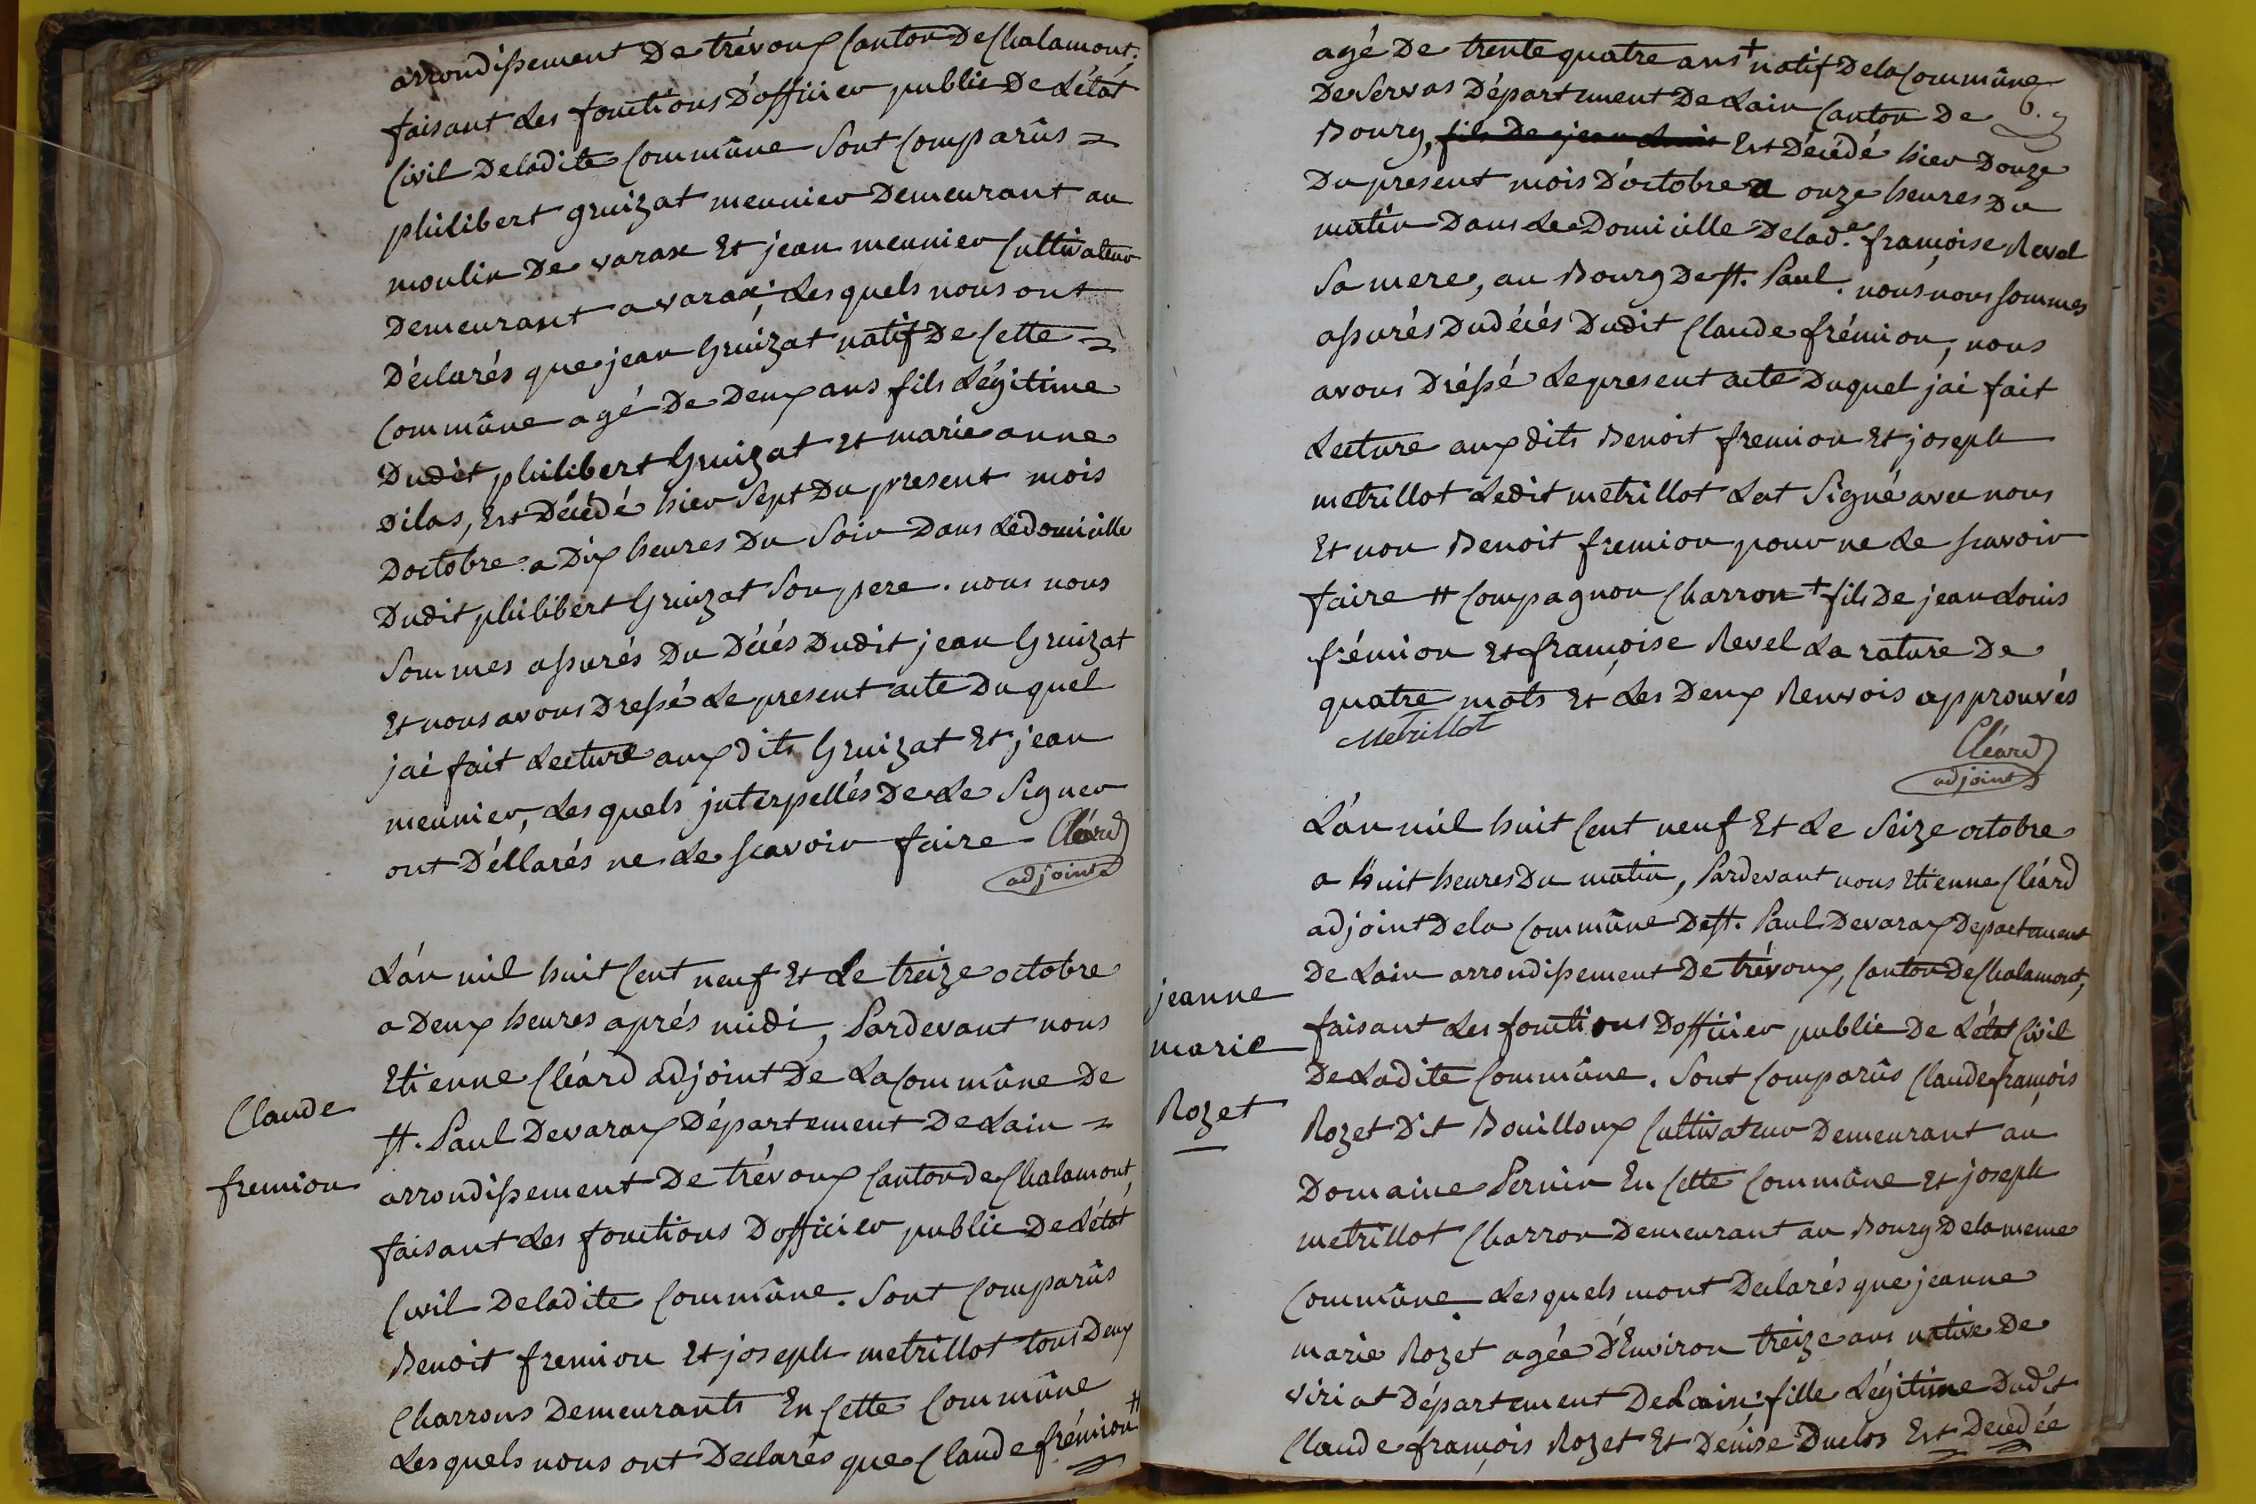 arrondissement De trévoux Canton De Chalamont,
faisant Les fonctions D'officier public De L'état
Civil De ladite Commûne Sont Comparûs =
philibert gruizat meunier Demeurant au
moulin De varax Et jean meunier Cultivateur
Demeurant a varax, Lesquels nous ont
Déclarés que jean Gruizat natif De Cette =
Commûne agé De Deux ans fils Légitime
Dudit philibert Gruizat et marie anne
Dilas, Est Décédé hier Sept Du present mois
Doctobre a Dix heures Du Soir Dans Le domicille
Dudit philibert Gruizat Son pere. nous nous
Sommes assurés Du Décés Dudit jean Gruizat
Et nous avons Dressé Le present acte Duquel
jai fait Lecture aux dits Gruizat Et jean
meunier, Lesquels interpellés De Le Signer
ont Déllarés ne Le scavoir faire - Cléard
adjoint
L'an mil huit Cent neuf Et Le treize octobre
a Deux heures aprés midi, Pardevant nous
Etienne Cléard adjoint De La Commûne De
St. Paul De varax Département De Lain =
arrondissement De trévoux Canton de Chalamont,
faisant Les fonctions Dofficier public De L'état
Civil De ladite Commûne. Sont Comparûs
Benoit fremion Et joseph metrillot tous Deux
Charrons Demeurants En Cette Commûne
Lesquels nous ont Declarés que Claude frémion #
Claude
fremion
agé De trente quatre ans + natif De la Commûne
De Servas Département De Lain Canton De
Bourg, fils De jean Louis Est Décédé hier Douze
Du present mois D'octobre a onze heures Du
matin Dans Le Domicille De lad.e françoise Revel
Sa mere, au Bourg De St. Paul. nous nous sommes
assurés Du décés Dudit Claude frémion, nous
avons Dréssé Le present acte Duquel jai fait
Lecture aux dits Benoit fremion Et joseph
metrillot Ledit metrillot Lat Signé avec nous
Et non Benoit fremion pour ne Le scavoir
faire # Compagnon Charron + fils De jean Louis
frémion Et françoise Revel La rature De
quatre mots Et Les Deux Renvois approuvés
Metrillot
Cléard
adjoint
L'an mil huit Cent neuf Et Le Seize octobre
a huit heures Du matin, Pardevant nous Etienne Cléard
adjoint De la Commûne De St. Paul De varax Departement
De Lain arrondissement De trévoux, Canton De Chalamont,
faisant Les fonctions Dofficier public De L'état Civil
De Ladite Commûne. Sont Comparûs Claude françois
Rozet Dit Bouilloux Cultivateur Demeurant au
Domaine Pernin En Cette Commûne Et joseph
metrillot Charron Demeurant au Bourg De la meme
Commûne. Lesquels mont Declarés que jeanne
marie Rozet agée D'Environ treize ans native De
viriat Département De Lain. fille Légitime Dudit
Claude françois Rozet Et Dénise Duclos Est Decedée
jeanne
marie
Rozet